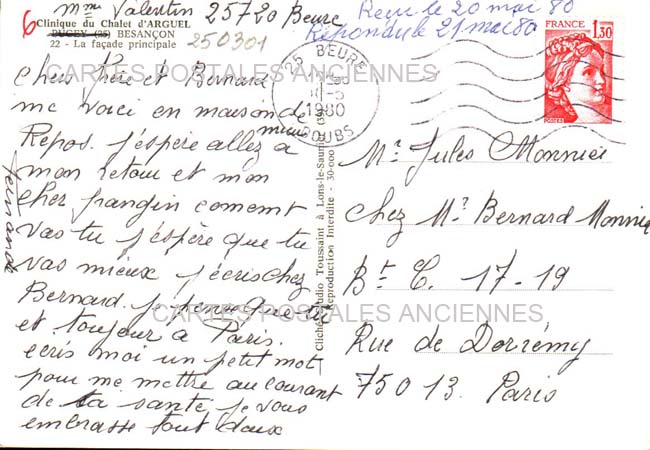 6
Mme Valentin 25720 Beure
Reçu le 20 mai 80
Répondu le 21 mai 80
Clinique du Chalet d'ARGUEL
PUGEY (25) BESANÇON
22 - La façade principale
250301
25 BEURE
-5
1980
DOUBS
FRANCE
1,30
POSTES
CARTES POSTALES ANCIENNES
Cher Frère et Bernard
me voici en maison de
Repos. j'espère allez a
mieux
mon retour et mon
cher frangin coment
vas tu j'éspère que tu
vas mieux j'écris chez
Bernard je pense que tu
et toujour à Paris.
ecris moi un petit mot
pour me mettre au courant
de ta santé, je vous
embrasse tout deux
Fernande
Cliché Studio Toussaint à Lons-le-Saunier
Reproduction Interdite - 30-000
Mr Jules Monnier
Chez Mr Bernard Monnier
Bt C. 17-19
Rue de Domrémy
75013. Paris
CARTES POSTALES ANCIENNES